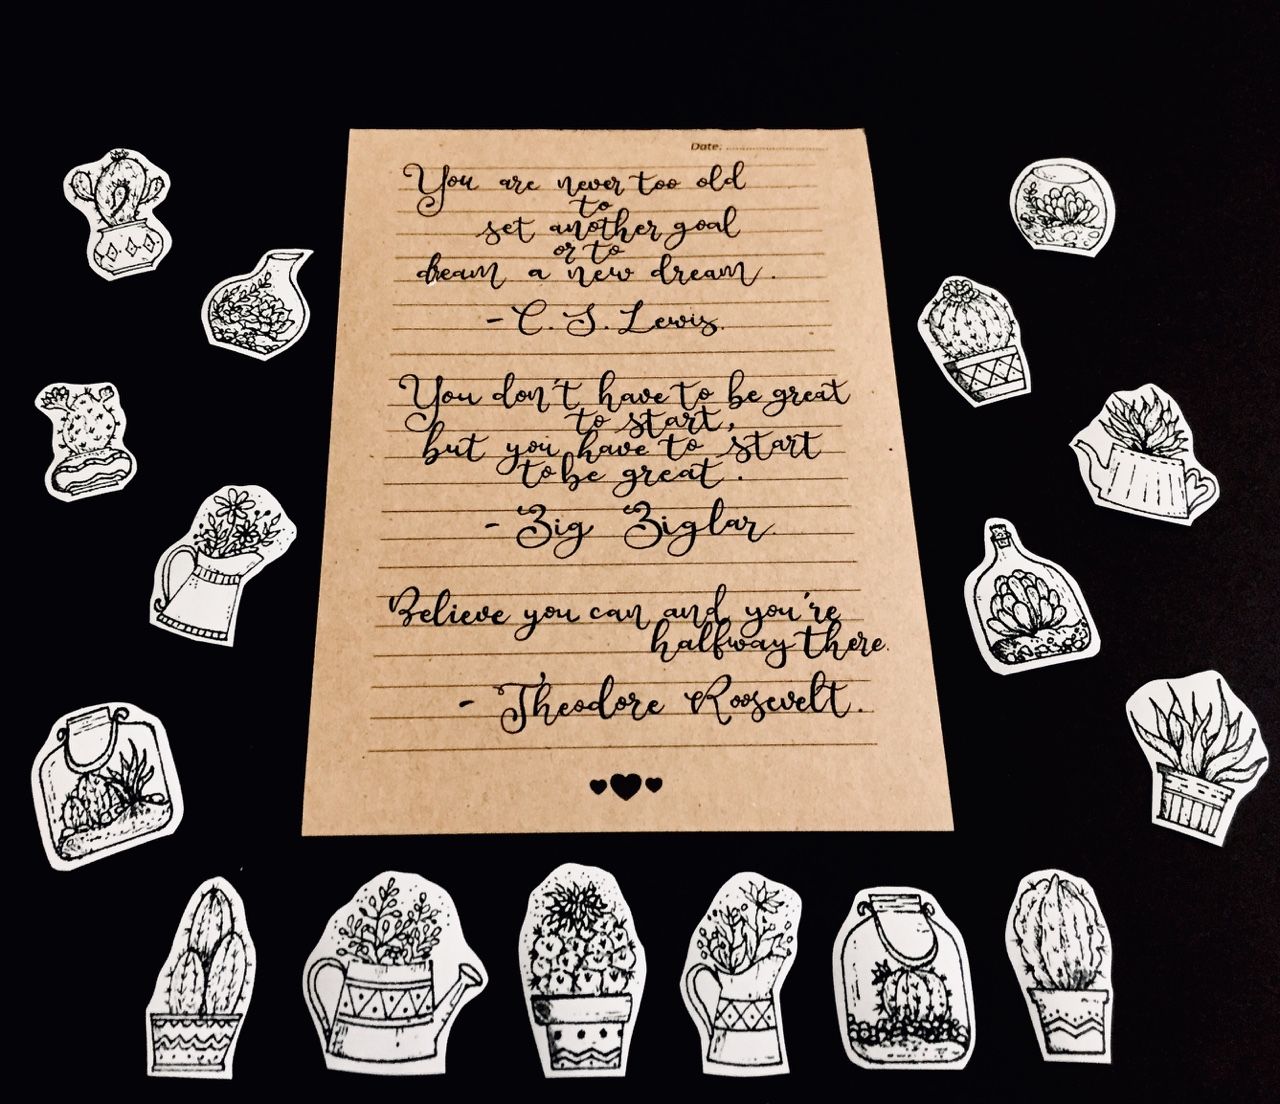 Date: ..............................
You are never too old
to
set another goal
or to
dream a new dream.
- C. S. Lewis.
You don't have to be great
to start,
but you have to start
to be great.
- Zig Ziglar.
Believe you can and you're
halfway there.
- Theodore Roosevelt.